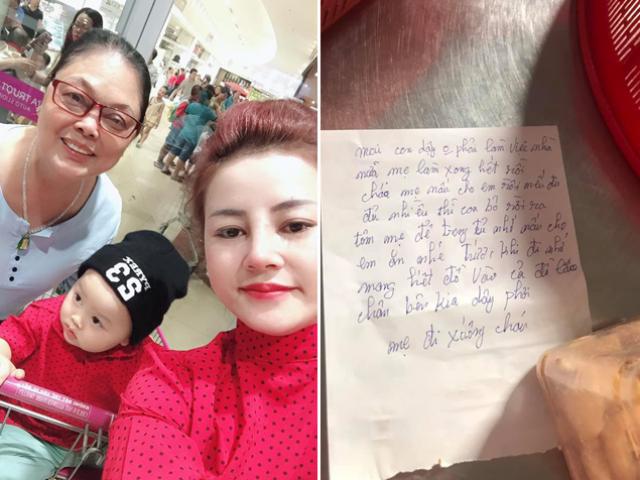 TA TRƯỢT
AUTO
53
mai con dậy o phải làm việc nhà
nữa mẹ làm xong hết rồi
cháo mẹ nấu cho em rồi nếu đi
đủ nhiều thì con bỏ rồi ra
tôm mẹ để trong tủ nhớ nấu cho
em ăn nhé trước khi đi nhớ
mang hết đồ vào cả
chân bên kia dây phơi
mẹ đi xuống cháu